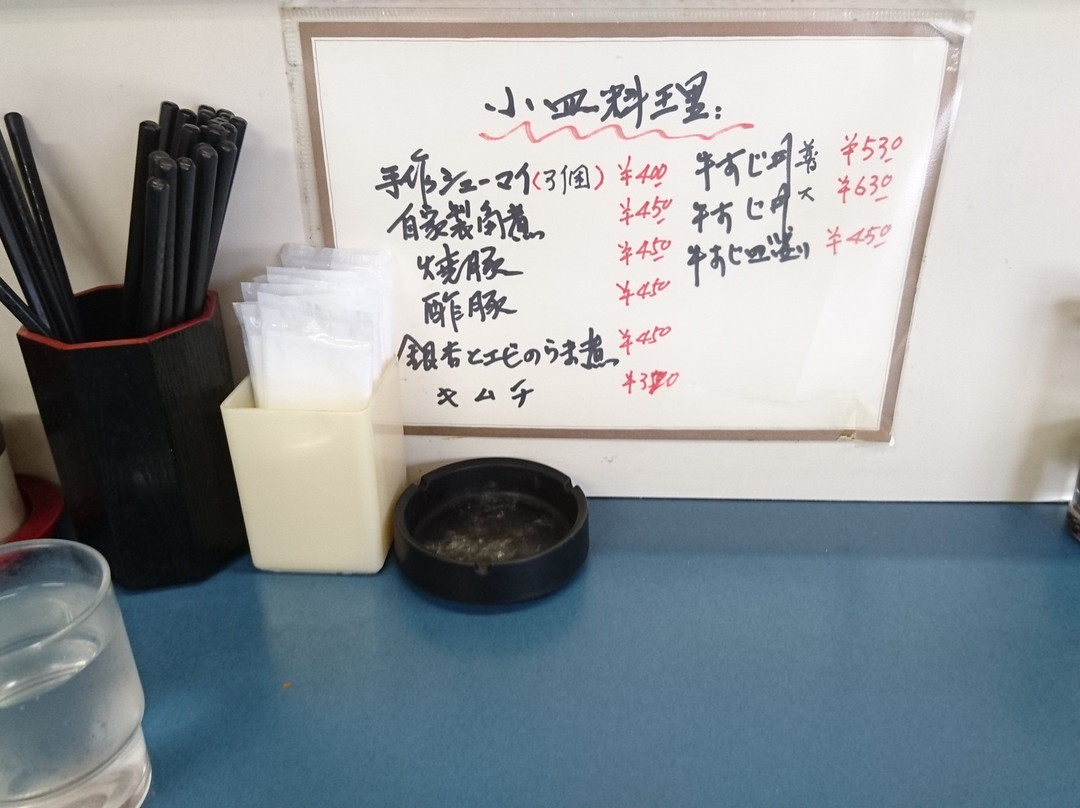 小皿料理:
手作りシューマイ(3個) ¥400
自家製角煮 ¥450
焼豚 ¥450
酢豚 ¥450
銀杏とエビのうま煮 ¥450
キムチ
牛すじ丼 普 ¥530
牛すじ丼 大 ¥630
牛すじ皿盛り ¥450